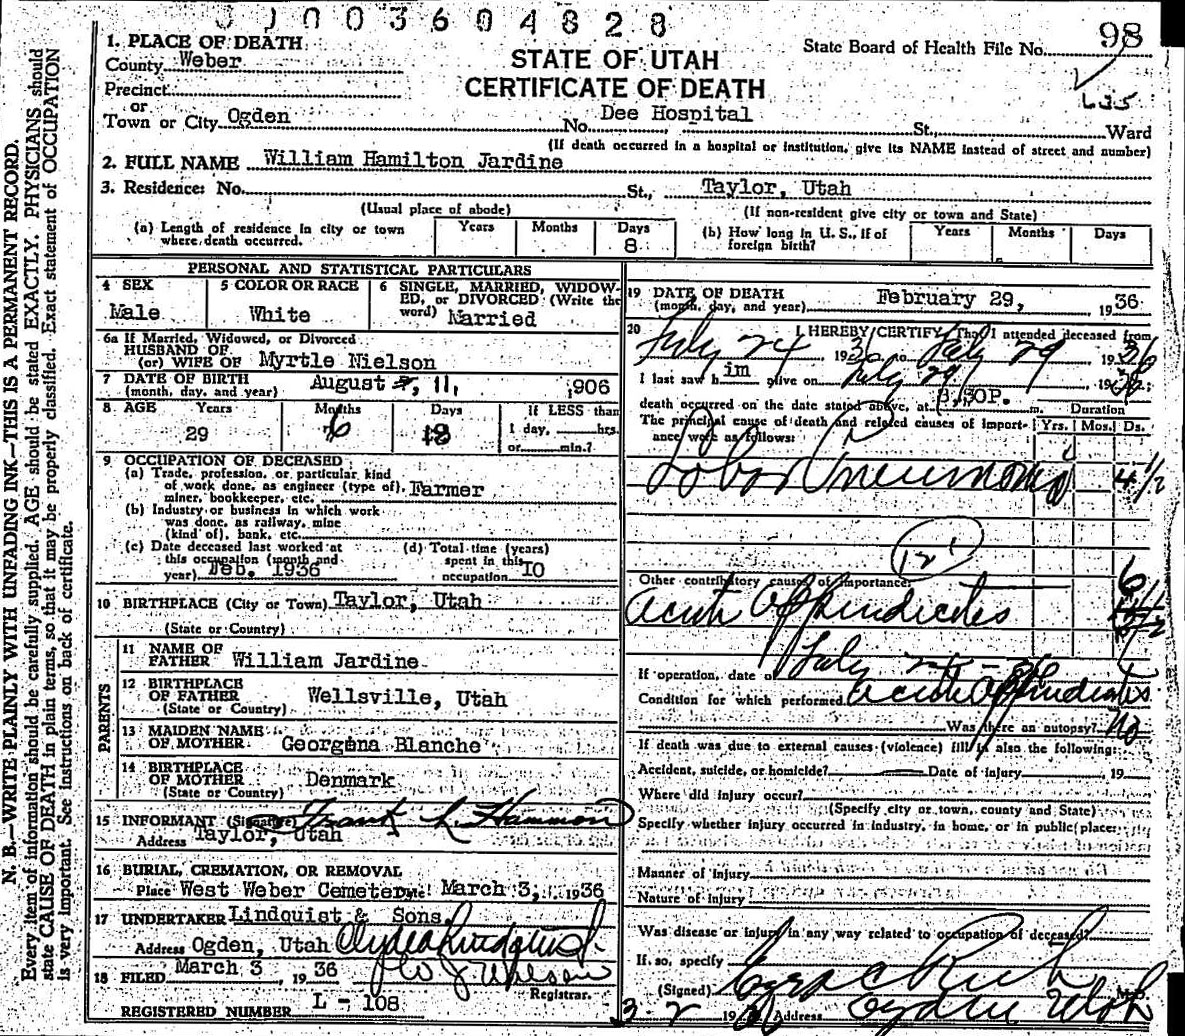 003604828
98
1. PLACE OF DEATH
County Weber
STATE OF UTAH
State Board of Health File No.
Precinct
CERTIFICATE OF DEATH
or
Town or City Ogden No. Dee Hospital St., Ward
(If death occurred in a hospital or institution, give its NAME instead of street and number)
2. FULL NAME William Hamilton Jardine
3. Residence: No. St., Taylor, Utah
(Usual place of abode) (If non-resident give city or town and State)
(a) Length of residence in city or town where death occurred. Years Months Days 8
(b) How long in U. S., if of foreign birth? Years Months Days
PERSONAL AND STATISTICAL PARTICULARS
4 SEX Male
5 COLOR OR RACE White
6 SINGLE, MARRIED, WIDOWED, or DIVORCED (Write the word) Married
6a If Married, Widowed, or Divorced
HUSBAND OF
(or) WIFE OF Myrtle Nielson
7 DATE OF BIRTH August 11, 1906
(month, day, and year)
8 AGE Years Months Days If LESS than
29 6 18 1 day, hrs.
or min.?
9 OCCUPATION OF DECEASED
(a) Trade, profession, or particular kind
of work done, as engineer (type of), Farmer
miner, bookkeeper, etc.
(b) Industry or business in which work
was done, as railway, mine
(kind of), bank, etc.
(c) Date deceased last worked at
this occupation (month and
year) Feb. 1936
(d) Total time (years)
spent in this
occupation 10
10 BIRTHPLACE (City or Town) Taylor, Utah
(State or Country)
PARENTS
11 NAME OF
FATHER William Jardine
12 BIRTHPLACE
OF FATHER Wellsville, Utah
(State or Country)
13 MAIDEN NAME
OF MOTHER Georgena Blanche
14 BIRTHPLACE
OF MOTHER Denmark
(State or Country)
15 INFORMANT (Signature) Frank L. Hammon
Address Taylor, Utah
16 BURIAL, CREMATION, OR REMOVAL
Place West Weber Cemetery March 3, 1936
17 UNDERTAKER Lindquist & Sons,
Address Ogden, Utah Clyde Lindquist
18 FILED March 3 1936
Registrar.
REGISTERED NUMBER L - 108
19 DATE OF DEATH February 29, 1936
(month, day, and year)
20 I HEREBY CERTIFY That I attended deceased from
Feby 24 1936 to Feby 29 1936
I last saw him alive on Feby 29 1936;
death occurred on the date stated above, at P. m. Duration
The principal cause of death and related causes of importance were as follows: Yrs. Mos. Ds.
Lobar Pneumonia 4 1/2
Other contributory causes of importance:
Acute Appendicites 6
If operation, date of Feby 24 - 36
Condition for which performed Acute Appendicites
Was there an autopsy? No
If death was due to external causes (violence) fill in also the following:
Accident, suicide, or homicide? Date of injury 19
Where did injury occur?
(Specify city or town, county and State)
Specify whether injury occurred in industry, in home, or in public place:
Manner of injury
Nature of injury
Was disease or injury in any way related to occupation of deceased?
If so, specify
(Signed) Ezra C Rich M.D.
3-2 1936 Address Ogden Utah
N. B.—WRITE PLAINLY WITH UNFADING INK—THIS IS A PERMANENT RECORD.
Every item of information should be carefully supplied. AGE should be stated EXACTLY. PHYSICIANS should
state CAUSE OF DEATH in plain terms, so that it may be properly classified. Exact statement of OCCUPATION
is very important. See instructions on back of certificate.